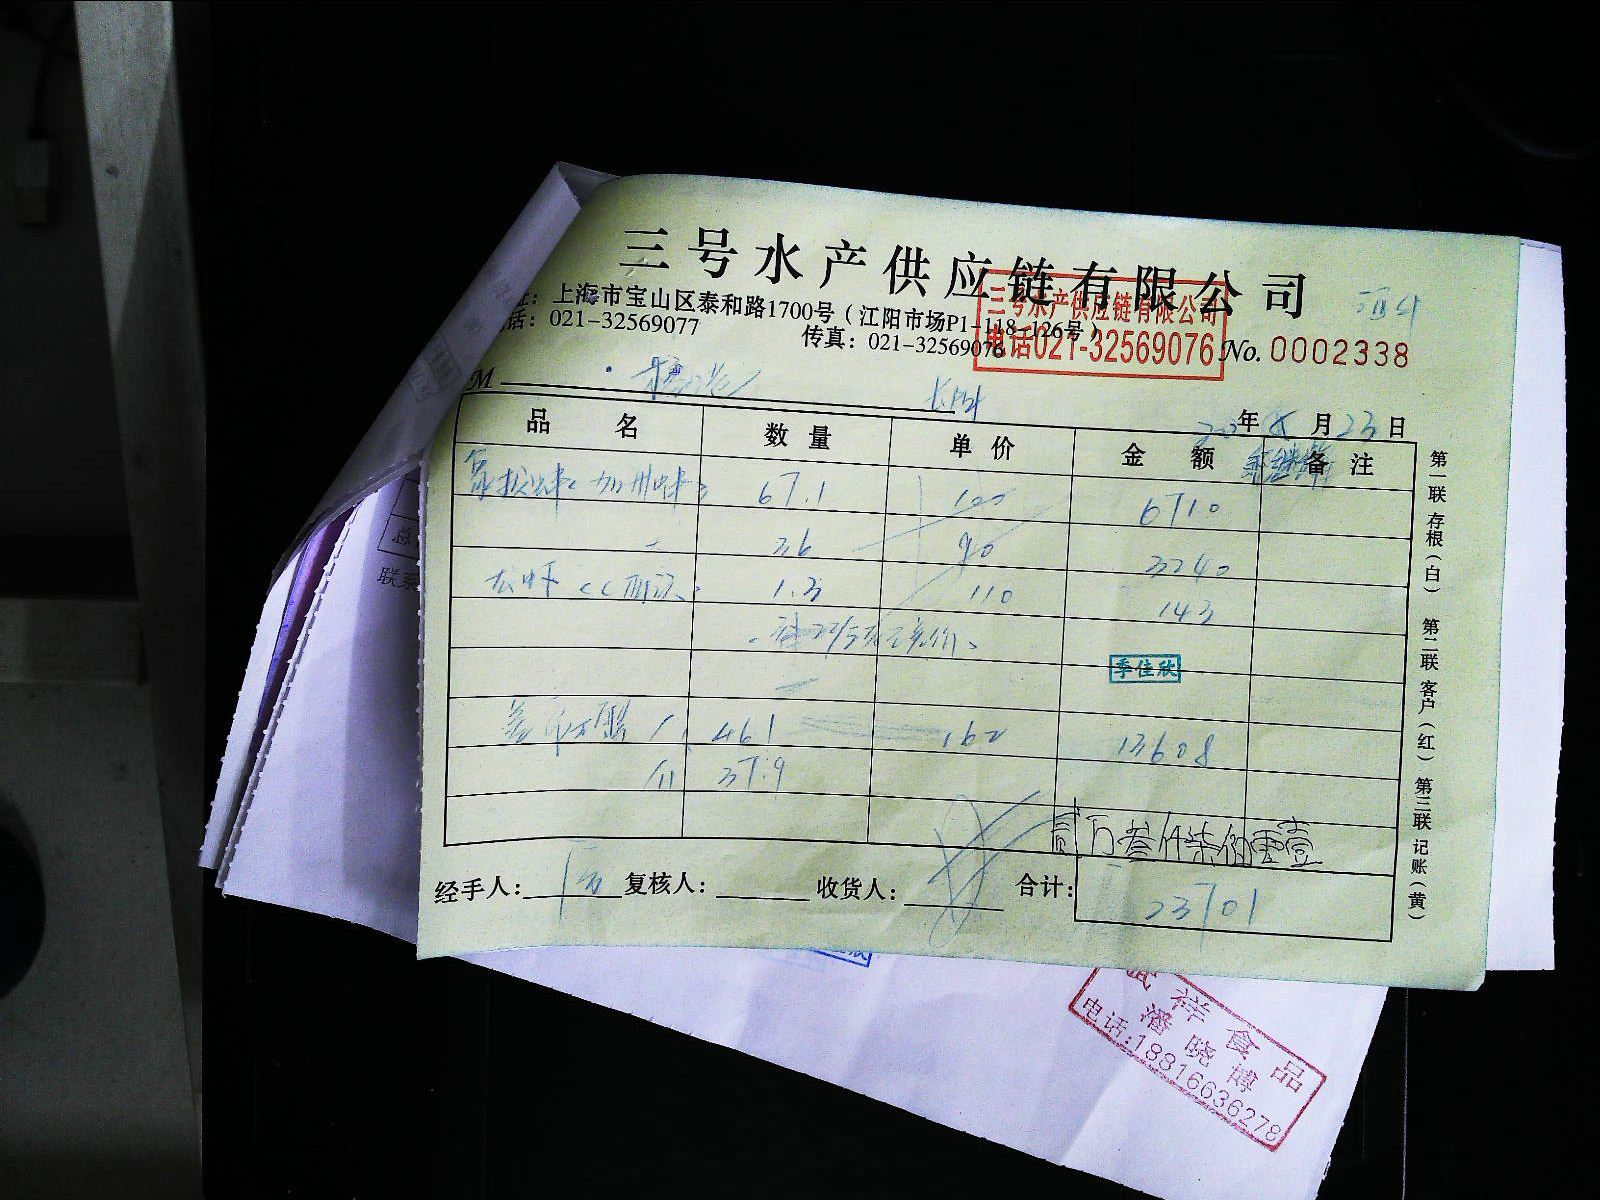 三号水产供应链有限公司
址：上海市宝山区泰和路1700号（江阳市场P1-118-126号）
电话：021-32569077 传真：021-32569076
三号水产供应链有限公司
电话021-32569076
No. 0002338
M
年8月23日
品名 数量 单价 金额 备注
加州 67.1 100 6710
36 90 3240
1.3 110 143
季佳欣
461 162 13608
37.9
贰万叁仟柒佰零壹
经手人： 复核人： 收货人： 合计： 23701
第一联 存根（白） 第二联 客户（红） 第三联 记账（黄）
联系
祥食品
潘晓博
电话:18816636278